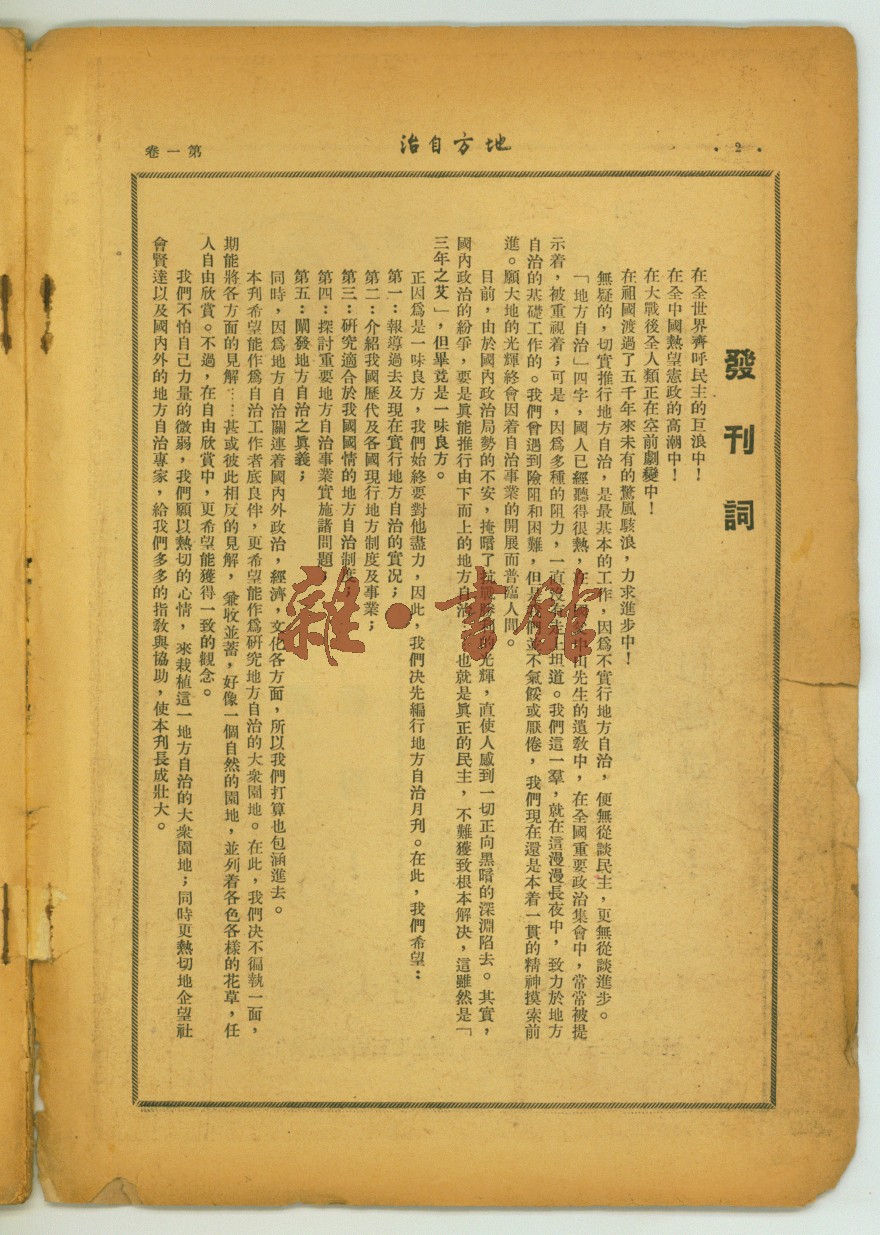 ・2・
地方自治
第一卷
發刊詞
在全世界齊呼民主的巨浪中！
在全中國熱望憲政的高潮中！
在大戰後全人類正在空前劇變中！
在祖國渡過了五千年來未有的驚風駭浪，力求進步中！
無疑的，切實推行地方自治，是最基本的工作，因爲不實行地方自治，便無從談民主，更無從談進步。
「地方自治」四字，國人已經聽得很熱，在國父中山先生的遺敎中，在全國重要政治集會中，常常被提
示着，被重視着；可是，因爲多種的阻力，一直沒有走上坦道。我們這一羣，就在這漫漫長夜中，致力於地方
自治的基礎工作的。我們曾遇到險阻和困難，但是我們並不氣餒或厭倦，我們現在還是本着一貫的精神摸索前
進。願大地的光輝終會因着自治事業的開展而普臨人間。
目前，由於國內政治局勢的不安，掩暗了抗戰勝利的光輝，直使人感到一切正向黑暗的深淵陷去。其實，
國內政治的紛爭，要是眞能推行由下而上的地方自治，也就是眞正的民主，不難獲致根本解決，這雖然是「
三年之艾」，但畢竟是一味良方。
正因爲是一味良方，我們始終要對他盡力，因此，我們決先編行地方自治月刋。在此，我們希望：
第一：報導過去及現在實行地方自治的實況；
第二：介紹我國歷代及各國現行地方制度及事業；
第三：研究適合於我國國情的地方自治制度；
第四：探討重要地方自治事業實施諸問題；
第五：闡發地方自治之眞義；
同時，因爲地方自治關連着國內外政治，經濟，文化各方面，所以我們打算也包涵進去。
本刋希望能作爲自治工作者底良伴，更希望能作爲研究地方自治的大衆園地。在此，我們決不徧執一面，
期能將各方面的見解……甚或彼此相反的見解，兼收並蓄，好像一個自然的園地，並列着各色各樣的花草，任
人自由欣賞。不過，在自由欣賞中，更希望能獲得一致的觀念。
我們不怕自己力量的微弱，我們願以熱切的心情，來栽植這一地方自治的大衆園地；同時更熱切地企望社
會賢達以及國內外的地方自治專家，給我們多多的指敎與協助，使本刋長成壯大。
雜・書館